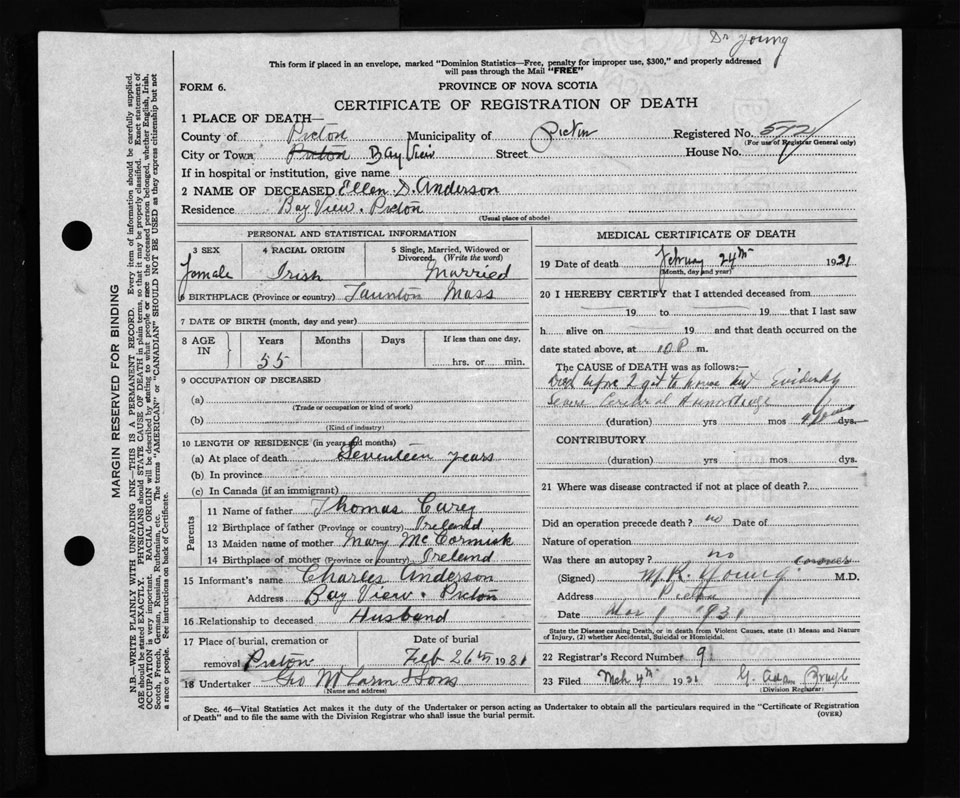 Dr Young
This form if placed in an envelope, marked "Dominion Statistics—Free, penalty for improper use, $300," and properly addressed
will pass through the Mail "FREE"
FORM 6.
PROVINCE OF NOVA SCOTIA
CERTIFICATE OF REGISTRATION OF DEATH
1 PLACE OF DEATH—
County of Pictou Municipality of Pictou Registered No. 572
(For use of Registrar General only)
City or Town Pictou Bay View Street House No.
If in hospital or institution, give name
2 NAME OF DECEASED Ellen D. Anderson
Residence Bay View. Pictou
(Usual place of abode)
PERSONAL AND STATISTICAL INFORMATION
3 SEX 4 RACIAL ORIGIN 5 Single, Married, Widowed or
Divorced. (Write the word)
Female Irish Married
6 BIRTHPLACE (Province or country) Taunton Mass
7 DATE OF BIRTH (month, day and year)
8 AGE IN Years Months Days If less than one day,
55 hrs. or min.
9 OCCUPATION OF DECEASED
(a)
(Trade or occupation or kind of work)
(b)
(Kind of industry)
10 LENGTH OF RESIDENCE (in years and months)
(a) At place of death Seventeen years
(b) In province
(c) In Canada (if an immigrant)
Parents
11 Name of father Thomas Carey
12 Birthplace of father (Province or country) Ireland
13 Maiden name of mother Mary McCormick
14 Birthplace of mother (Province or country) Ireland
15 Informant's name Charles Anderson
Address Bay View. Pictou
16 Relationship to deceased Husband
17 Place of burial, cremation or Date of burial
removal Pictou Feb 26th 1931
18 Undertaker Geo McLarn & Sons
(Name and address)
MEDICAL CERTIFICATE OF DEATH
19 Date of death February 24th 1931
(Month, day and year)
20 I HEREBY CERTIFY that I attended deceased from
19 to 19 that I last saw
h alive on 19 and that death occurred on
date stated above, at 10 P m.
The CAUSE of DEATH was as follows:—
Died before I got to house but Evidently
Severe Cerebral Hemorrhage
(duration) yrs mos dys.
CONTRIBUTORY
(duration) yrs mos dys.
21 Where was disease contracted if not at place of death?
Did an operation precede death? no Date of
Nature of operation
Was there an autopsy? no coroner
(Signed) M.R. Young M.D.
Address Pictou
Date Mar 1 1931
State the Disease causing Death, or in death from Violent Causes, state (1) Means and Nature
of Injury, (2) whether Accidental, Suicidal or Homicidal.
22 Registrar's Record Number
23 Filed Mch 4th 1931 G.
(Division Registrar)
Sec. 46—Vital Statistics Act makes it the duty of the Undertaker or person acting as Undertaker to obtain all the particulars required in the "Certificate of Registration
of Death" and to file the same with the Division Registrar who shall issue the burial permit. (OVER)
MARGIN RESERVED FOR BINDING
N.B.—WRITE PLAINLY WITH UNFADING INK—THIS IS A PERMANENT RECORD. Every item of information should be carefully supplied.
AGE should be stated EXACTLY. PHYSICIANS should STATE CAUSE OF DEATH in plain terms, so that it may be properly classified. Exact statement of
OCCUPATION is very important. RACIAL ORIGIN will be described by stating to what people or race the deceased person belonged, whether English, Irish,
Scotch, French, German, Russian, Ruthenian, etc. The terms "AMERICAN" or "CANADIAN" SHOULD NOT BE USED as they express citizenship but not
a race or people. See instructions on back of Certificate.